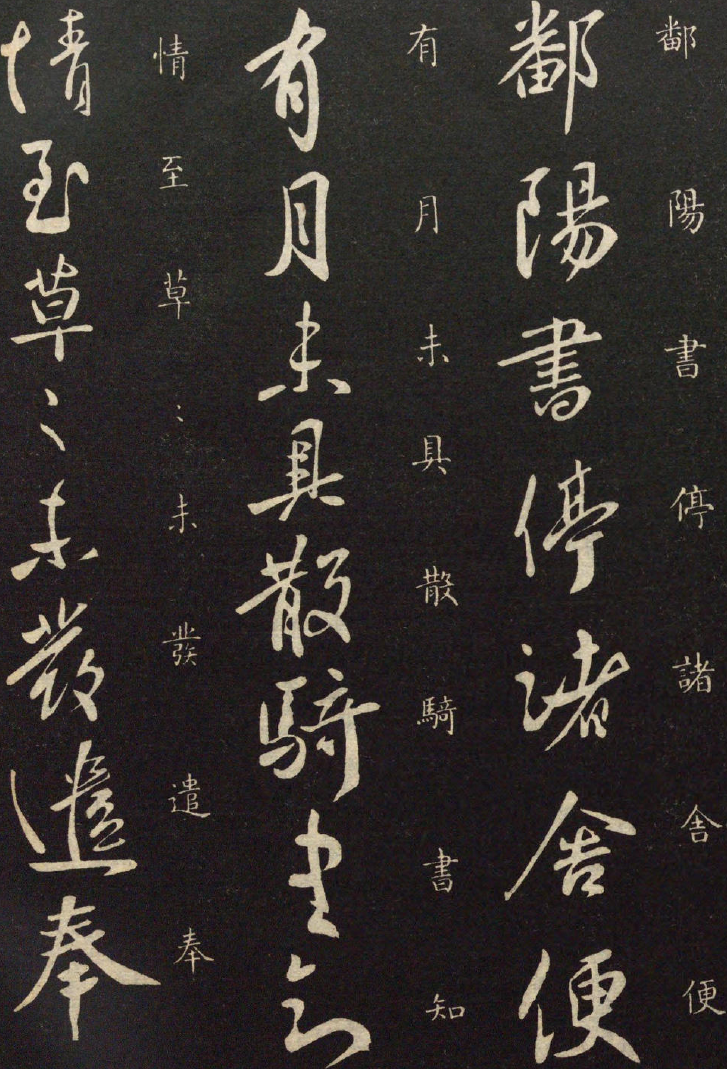 鄱陽書停諸舍便
鄱陽書停諸舍便
有月未具散騎書知
有月未具散騎書知
情至草〻未發遣奉
情至草〻未發遣奉